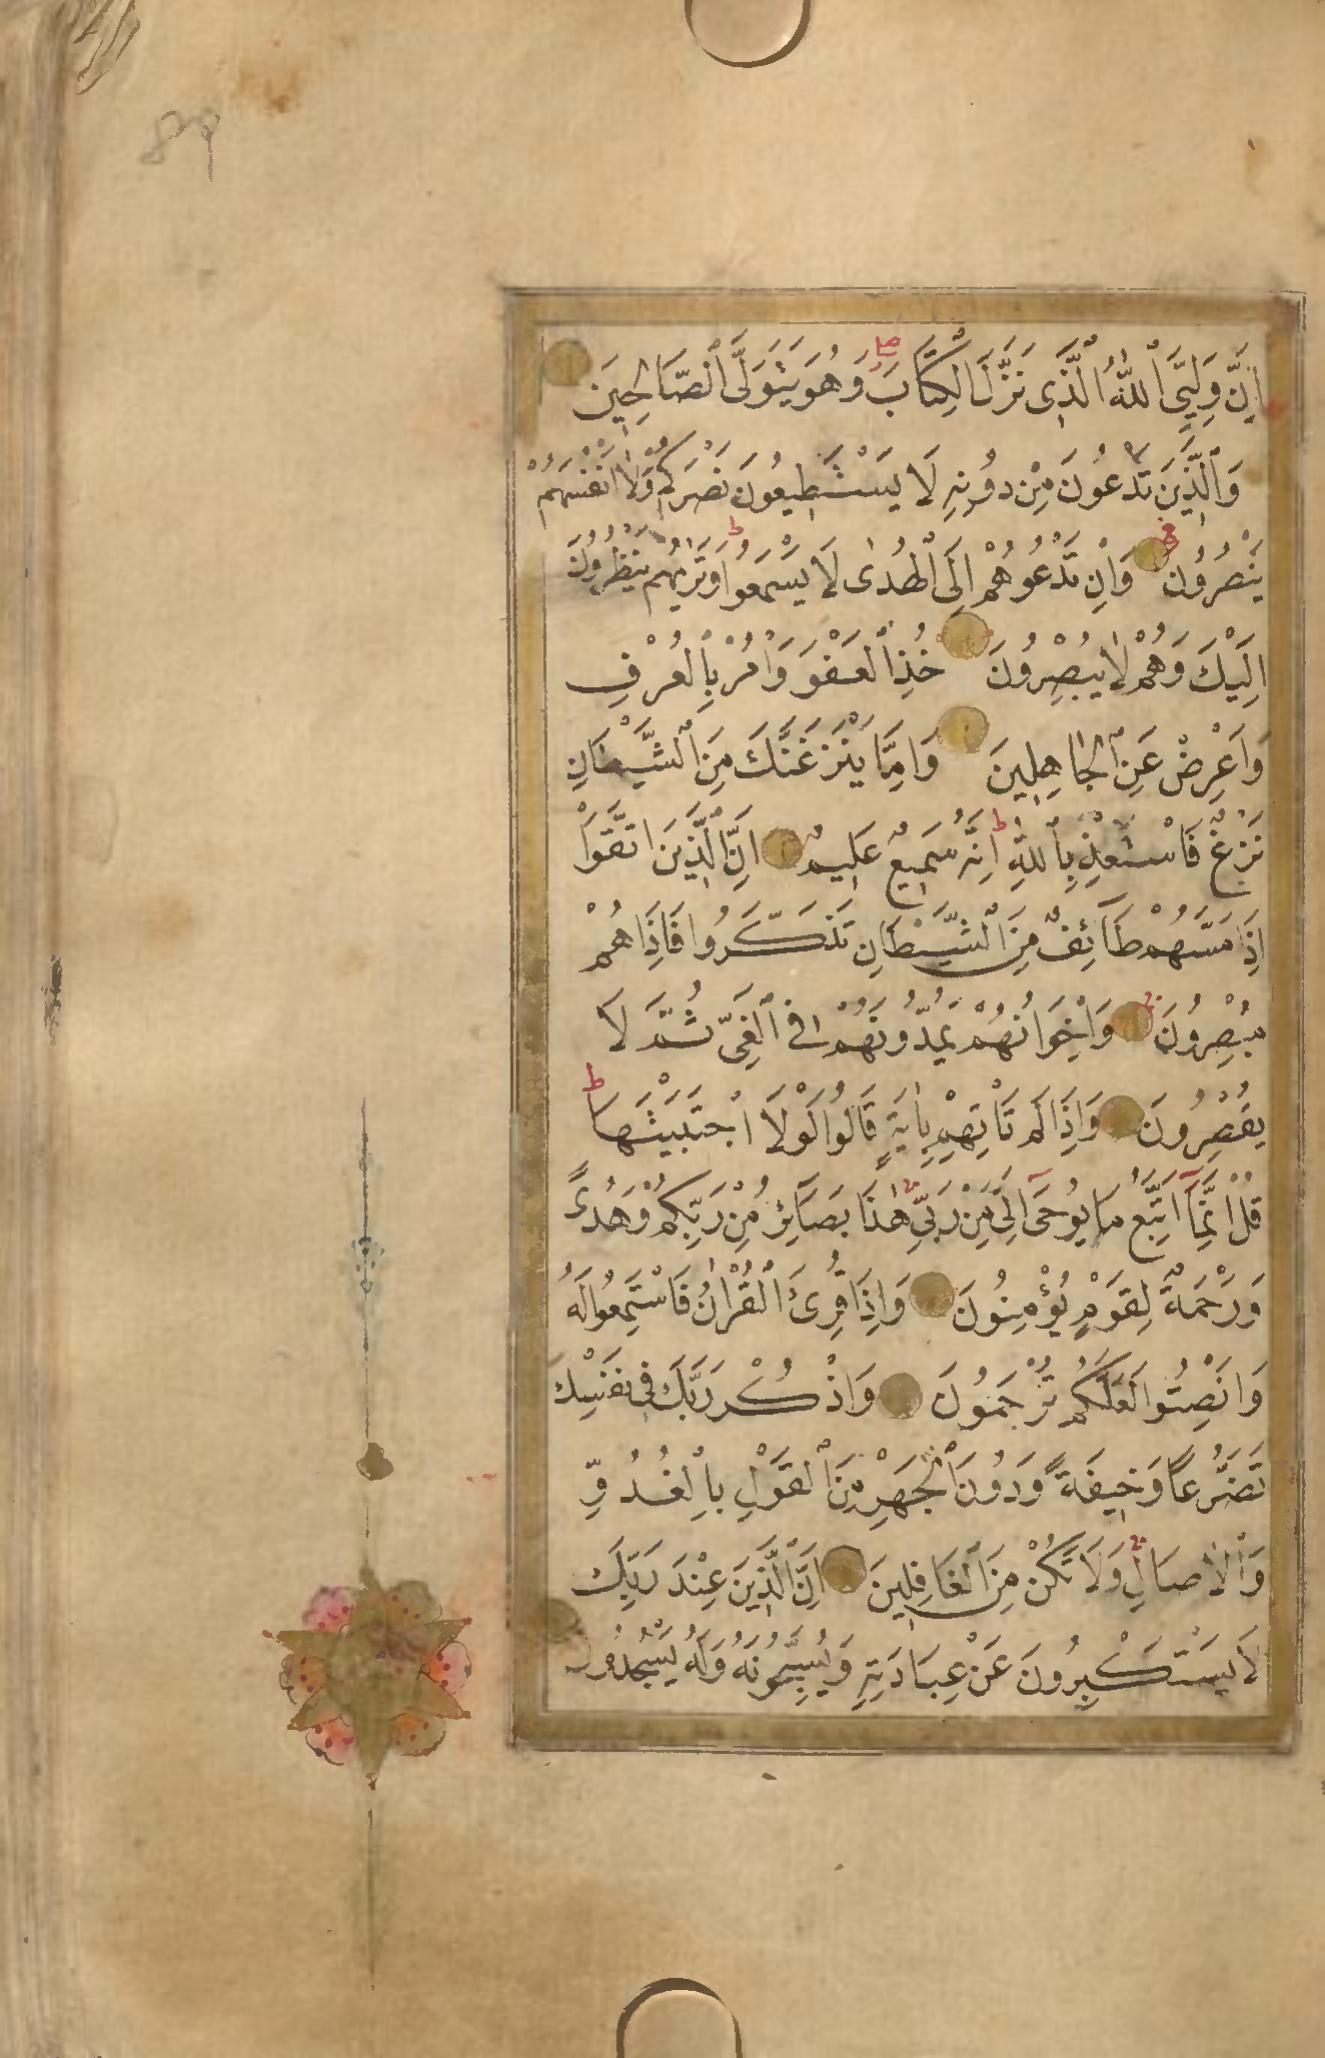 ٨٩
اِنَّ وَلِيِّىَ ٱللّٰهُ ٱلَّذٖى نَزَّلَ الْكِتَابَ وَهُوَ يَتَوَلَّى ٱلصَّالِحٖينَ
وَٱلَّذٖينَ تَدْعُونَ مِنْ دُونِهٖ لَا يَسْتَطٖيعُونَ نَصْرَكُمْ وَلَا اَنْفُسَهُمْ
يَنْصُرُونَ وَاِنْ تَدْعُوهُمْ اِلَى ٱلْهُدٰى لَا يَسْمَعُوا وَتَرٰيهُمْ يَنْظُرُونَ
اِلَيْكَ وَهُمْ لَا يُبْصِرُونَ خُذِ ٱلْعَفْوَ وَاْمُرْ بِٱلْعُرْفِ
وَاَعْرِضْ عَنِ ٱلْجَاهِلٖينَ وَاِمَّا يَنْزَغَنَّكَ مِنَ ٱلشَّيْطَانِ
نَزْغٌ فَاسْتَعِذْ بِٱللّٰهِ اِنَّهُ سَمٖيعٌ عَلٖيمٌ اِنَّ ٱلَّذٖينَ اتَّقَوْا
اِذَا مَسَّهُمْ طَآئِفٌ مِنَ ٱلشَّيْطَانِ تَذَكَّرُوا فَاِذَا هُمْ
مُبْصِرُونَ وَاِخْوَانُهُمْ يَمُدُّونَهُمْ فِى ٱلْغَىِّ ثُمَّ لَا
يُقْصِرُونَ وَاِذَا لَمْ تَأْتِهِمْ بِاٰيَةٍ قَالُوا لَوْلَا اجْتَبَيْتَهَا
قُلْ اِنَّمَآ اَتَّبِعُ مَا يُوحٰٓى اِلَىَّ مِنْ رَبّٖى هٰذَا بَصَآئِرُ مِنْ رَبِّكُمْ وَهُدًى
وَرَحْمَةٌ لِقَوْمٍ يُؤْمِنُونَ وَاِذَا قُرِئَ ٱلْقُرْاٰنُ فَاسْتَمِعُوا لَهُ
وَاَنْصِتُوا لَعَلَّكُمْ تُرْحَمُونَ وَاذْكُرْ رَبَّكَ فٖى نَفْسِكَ
تَضَرُّعًا وَخٖيفَةً وَدُونَ ٱلْجَهْرِ مِنَ ٱلْقَوْلِ بِالْغُدُوِّ
وَٱلْاٰصَالِ وَلَا تَكُنْ مِنَ ٱلْغَافِلٖينَ اِنَّ ٱلَّذٖينَ عِنْدَ رَبِّكَ
لَا يَسْتَكْبِرُونَ عَنْ عِبَادَتِهٖ وَيُسَبِّحُونَهُ وَلَهُ يَسْجُدُونَ